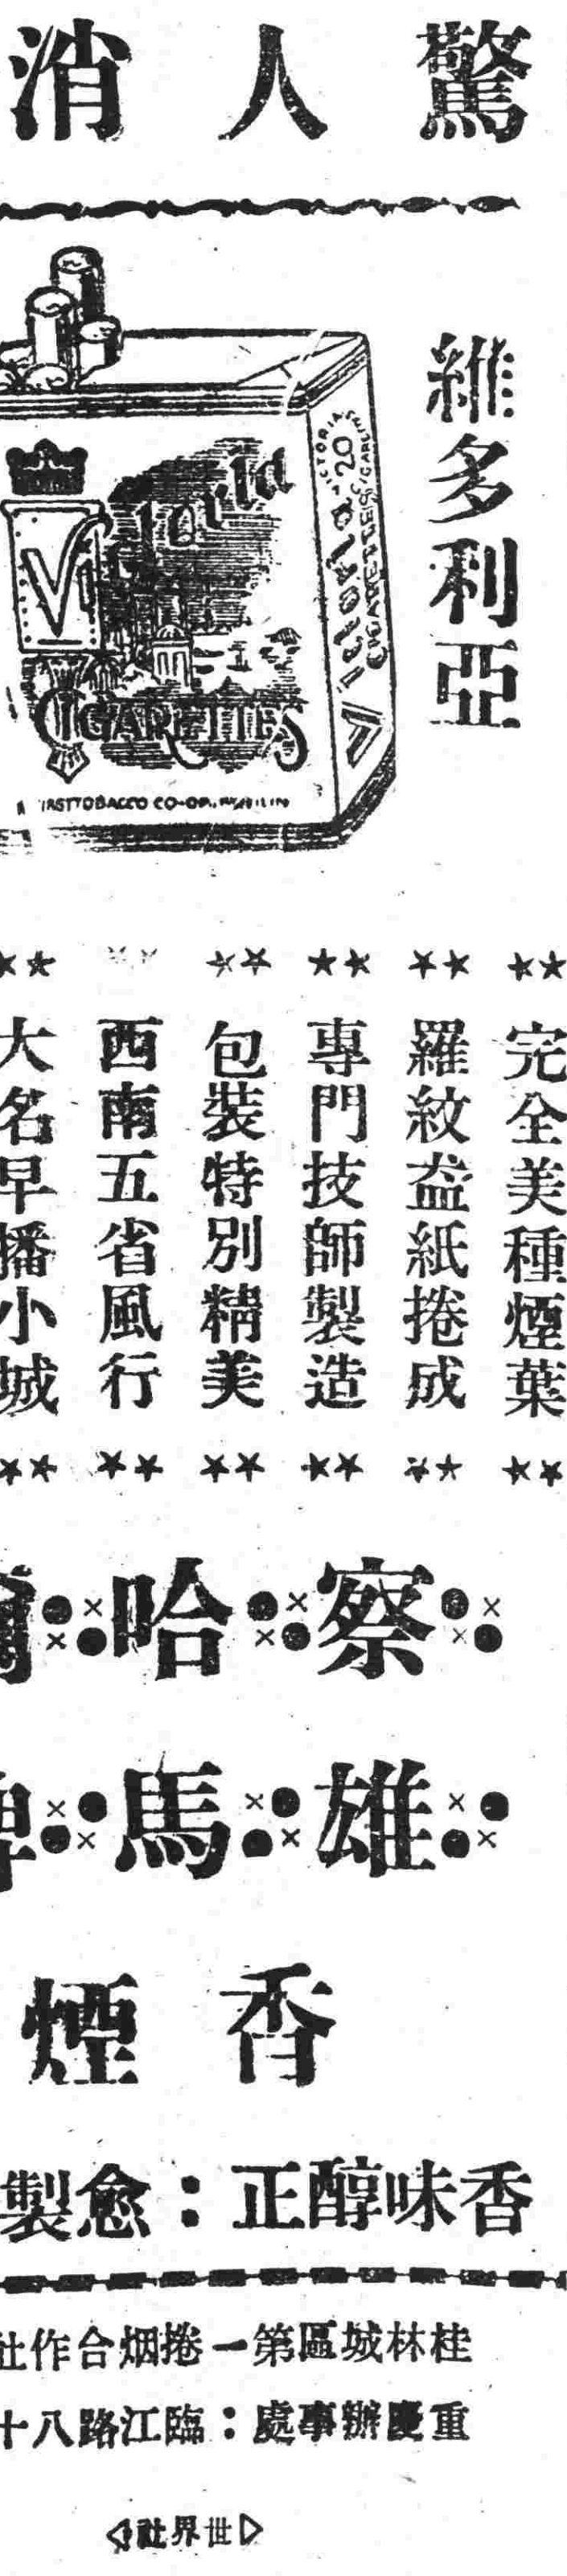 驚人消
維多利亞
Victoria
V
CIGARETTES
VICTORIA
20
CIGARETTES
完全美種煙葉
羅紋盆紙捲成
專門技師製造
包裝特別精美
西南五省風行
大名早播小城
察哈爾
雄馬牌
香煙
香味醇正：愈製
桂林城區第一捲烟合作社
重慶辦事處：臨江路八十
世界社